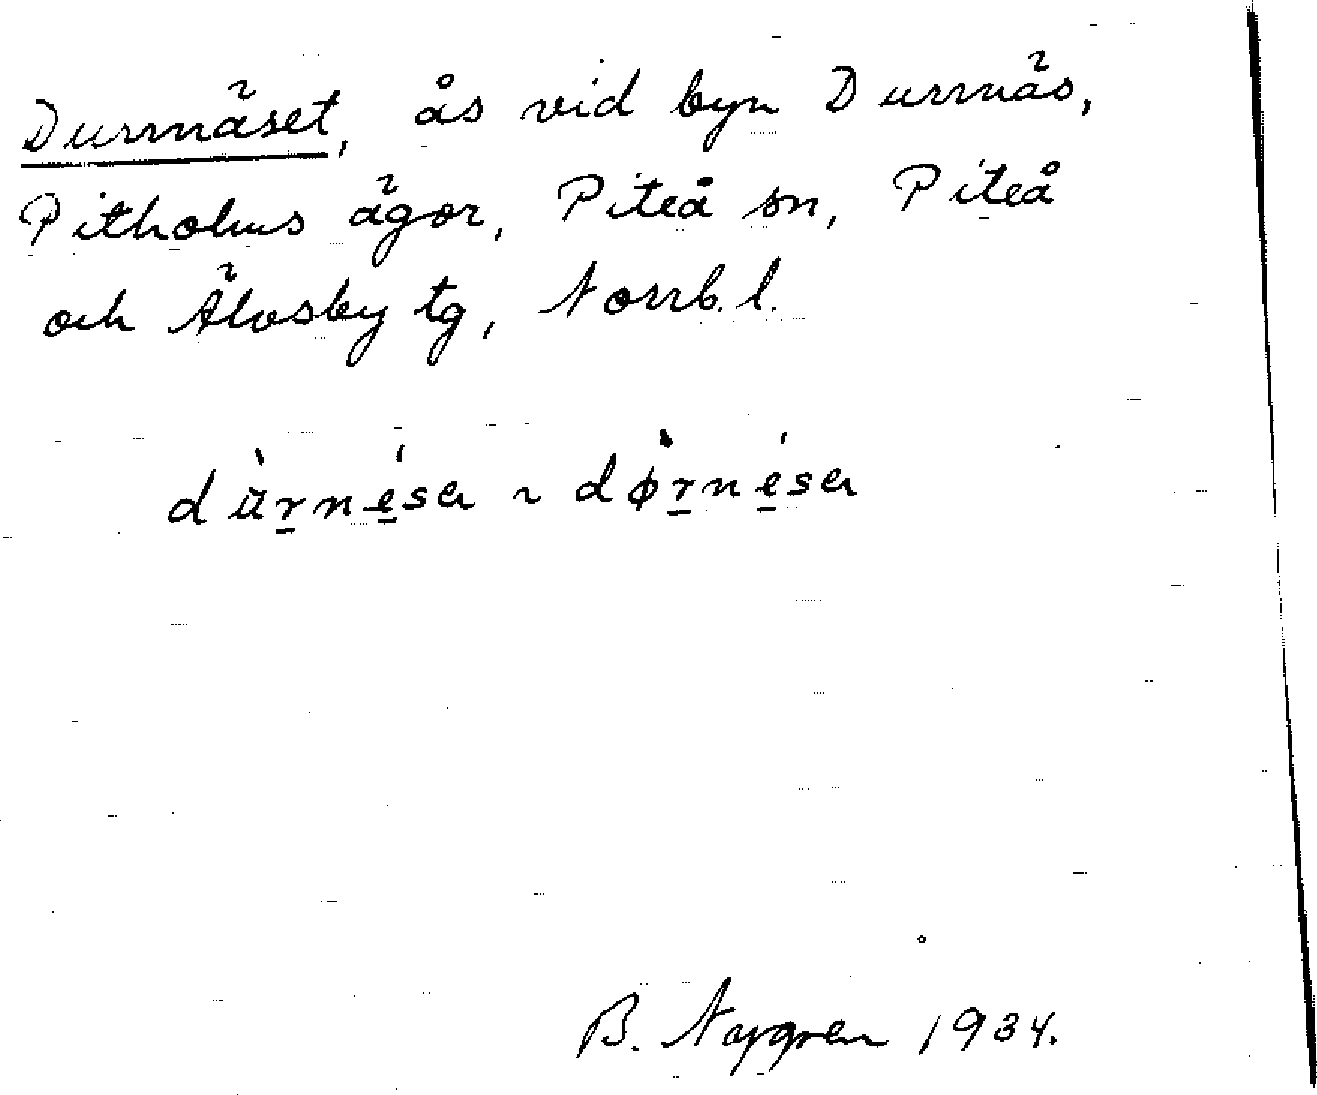 Durrnäset, ås vid byn Durrnäs,
Pitholms ägor, Piteå sn, Piteå
och Älvsby tg, Norrb. l.
dùrnésa ~ dø̀rnésa
B. Nygren 1934.